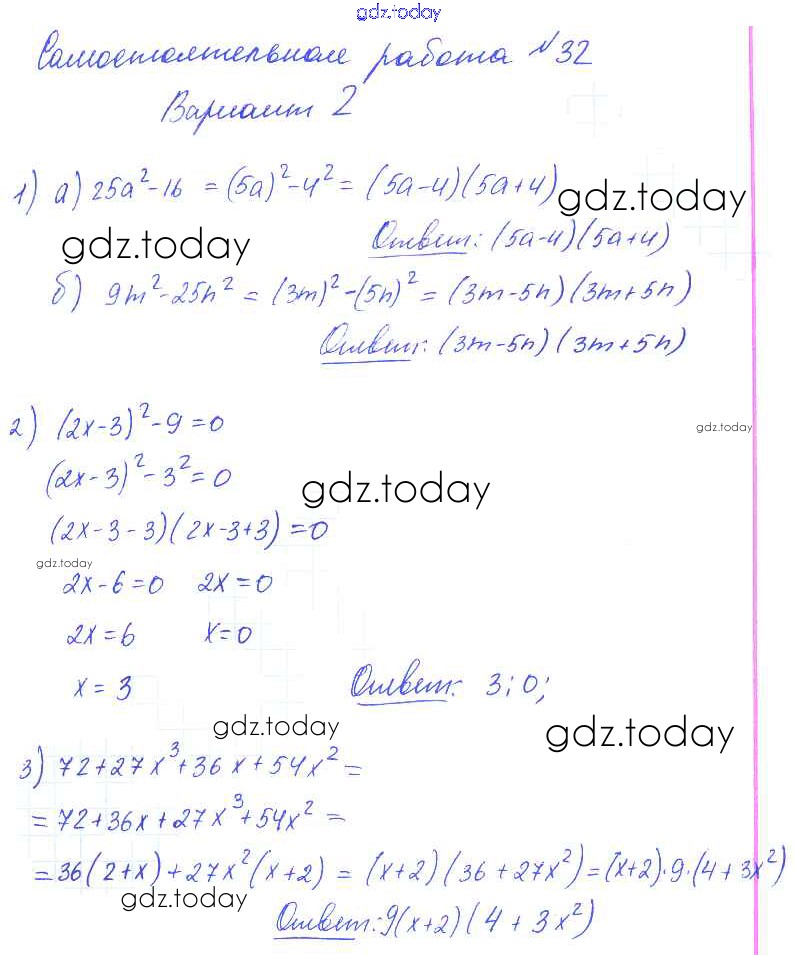 gdz.today
Самостоятельная работа №32
Вариант 2
1) а) 25a²-16 = (5a)²-4² = (5a-4)(5a+4)
gdz.today
Ответ: (5a-4)(5a+4)
gdz.today
б) 9m²-25n² = (3m)²-(5n)² = (3m-5n)(3m+5n)
Ответ: (3m-5n)(3m+5n)
2) (2x-3)²-9=0
gdz.today
(2x-3)²-3²=0
gdz.today
(2x-3-3)(2x-3+3)=0
gdz.today
2x-6=0 2x=0
2x=6 x=0
x=3 Ответ: 3; 0;
gdz.today
gdz.today
3) 72+27x³+36x+54x² =
= 72+36x+27x³+54x² =
= 36(2+x)+27x²(x+2) = (x+2)(36+27x²) = (x+2)·9·(4+3x²)
gdz.today
Ответ: 9(x+2)(4+3x²)